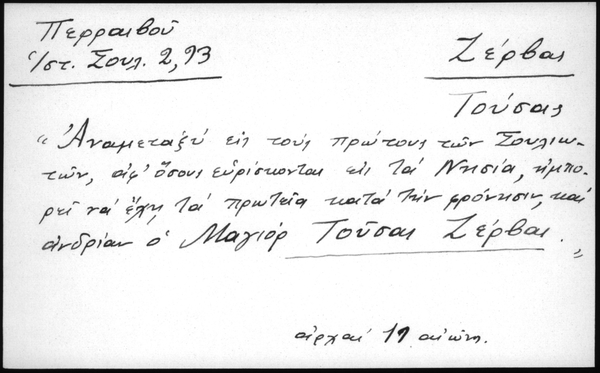 Περραιβού
Ἱστ. Σουλ. 2, 93
Ζέρβας
Τούσας
"Ἀναμεταξύ εἰς τούς πρώτους τῶν Σουλιω-
τῶν, ἀφ' ὅσους εὑρίσκονται εἰς τά Νησιά, ἠμπο-
ρεῖ νά ἔχῃ τά πρωτεῖα κατά τήν φρόνησιν, καί
ἀνδρίαν ὁ Μαγιόρ Τοῦσας Ζέρβας."
ἀρχαί 19 αἰῶν.